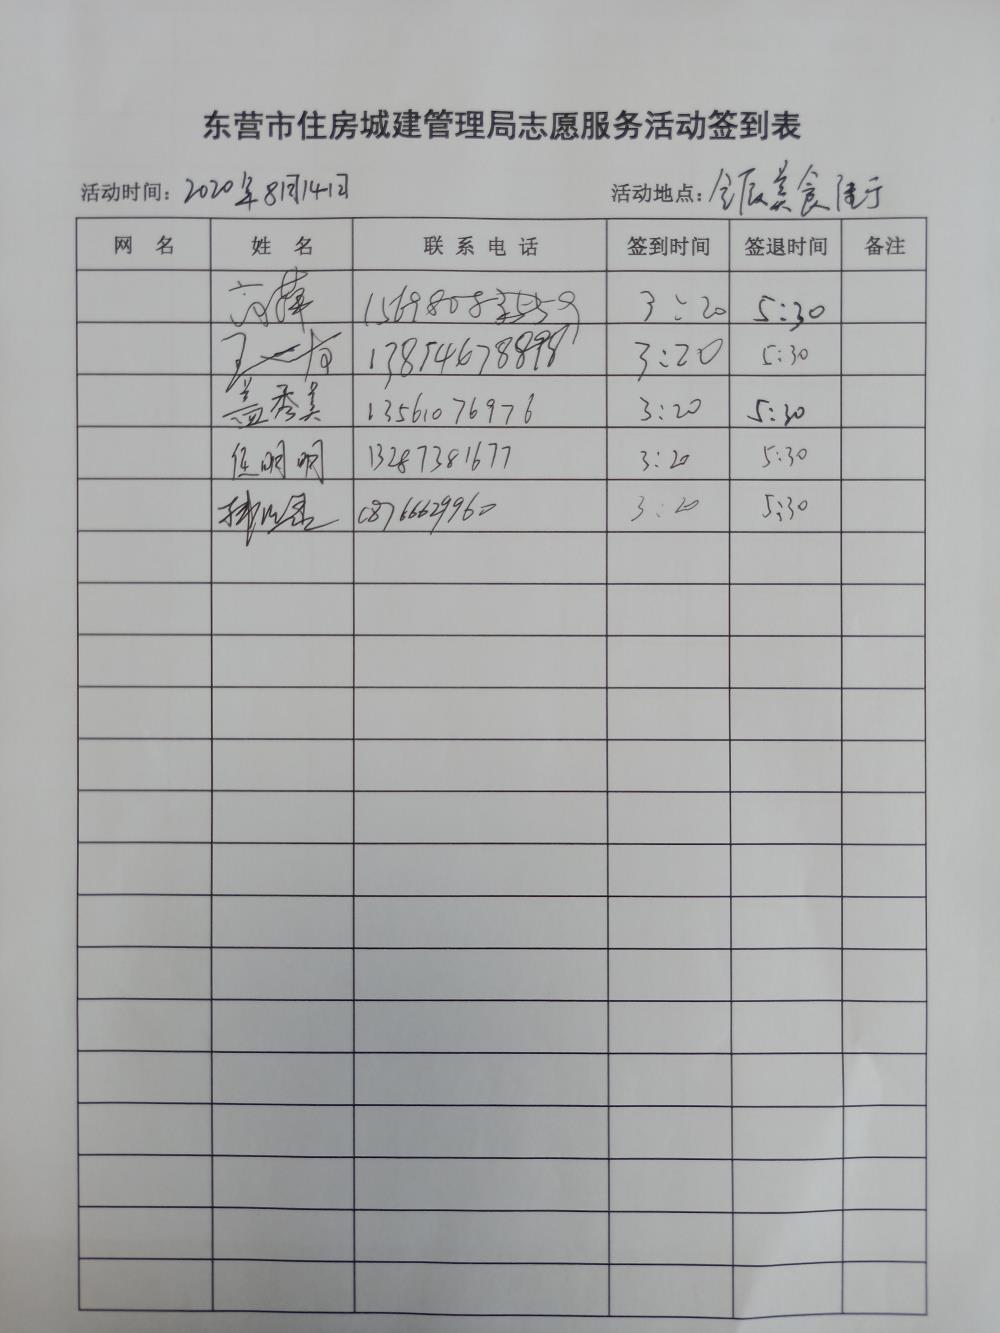 东营市住房城建管理局志愿服务活动签到表
活动时间：2020年8月14日 活动地点：美食
网 名 姓 名 联系电话 签到时间 签退时间 备注
3:20 5:30
3:20 5:30
盖秀美 13561076976 3:20 5:30
任明明 13287381677 3:20 5:30
3:20 5:30